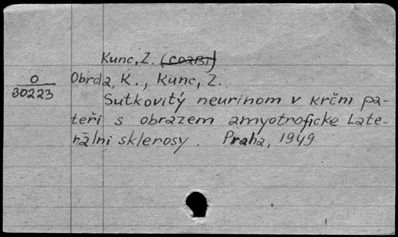 Kunc, Z.
O
30223
Obrda, K., Kunc, Z.
Sutkovitý neurinom v krční pa-
teři s obrazem amyotrofické Late-
rální sklerosy. Praha, 1949